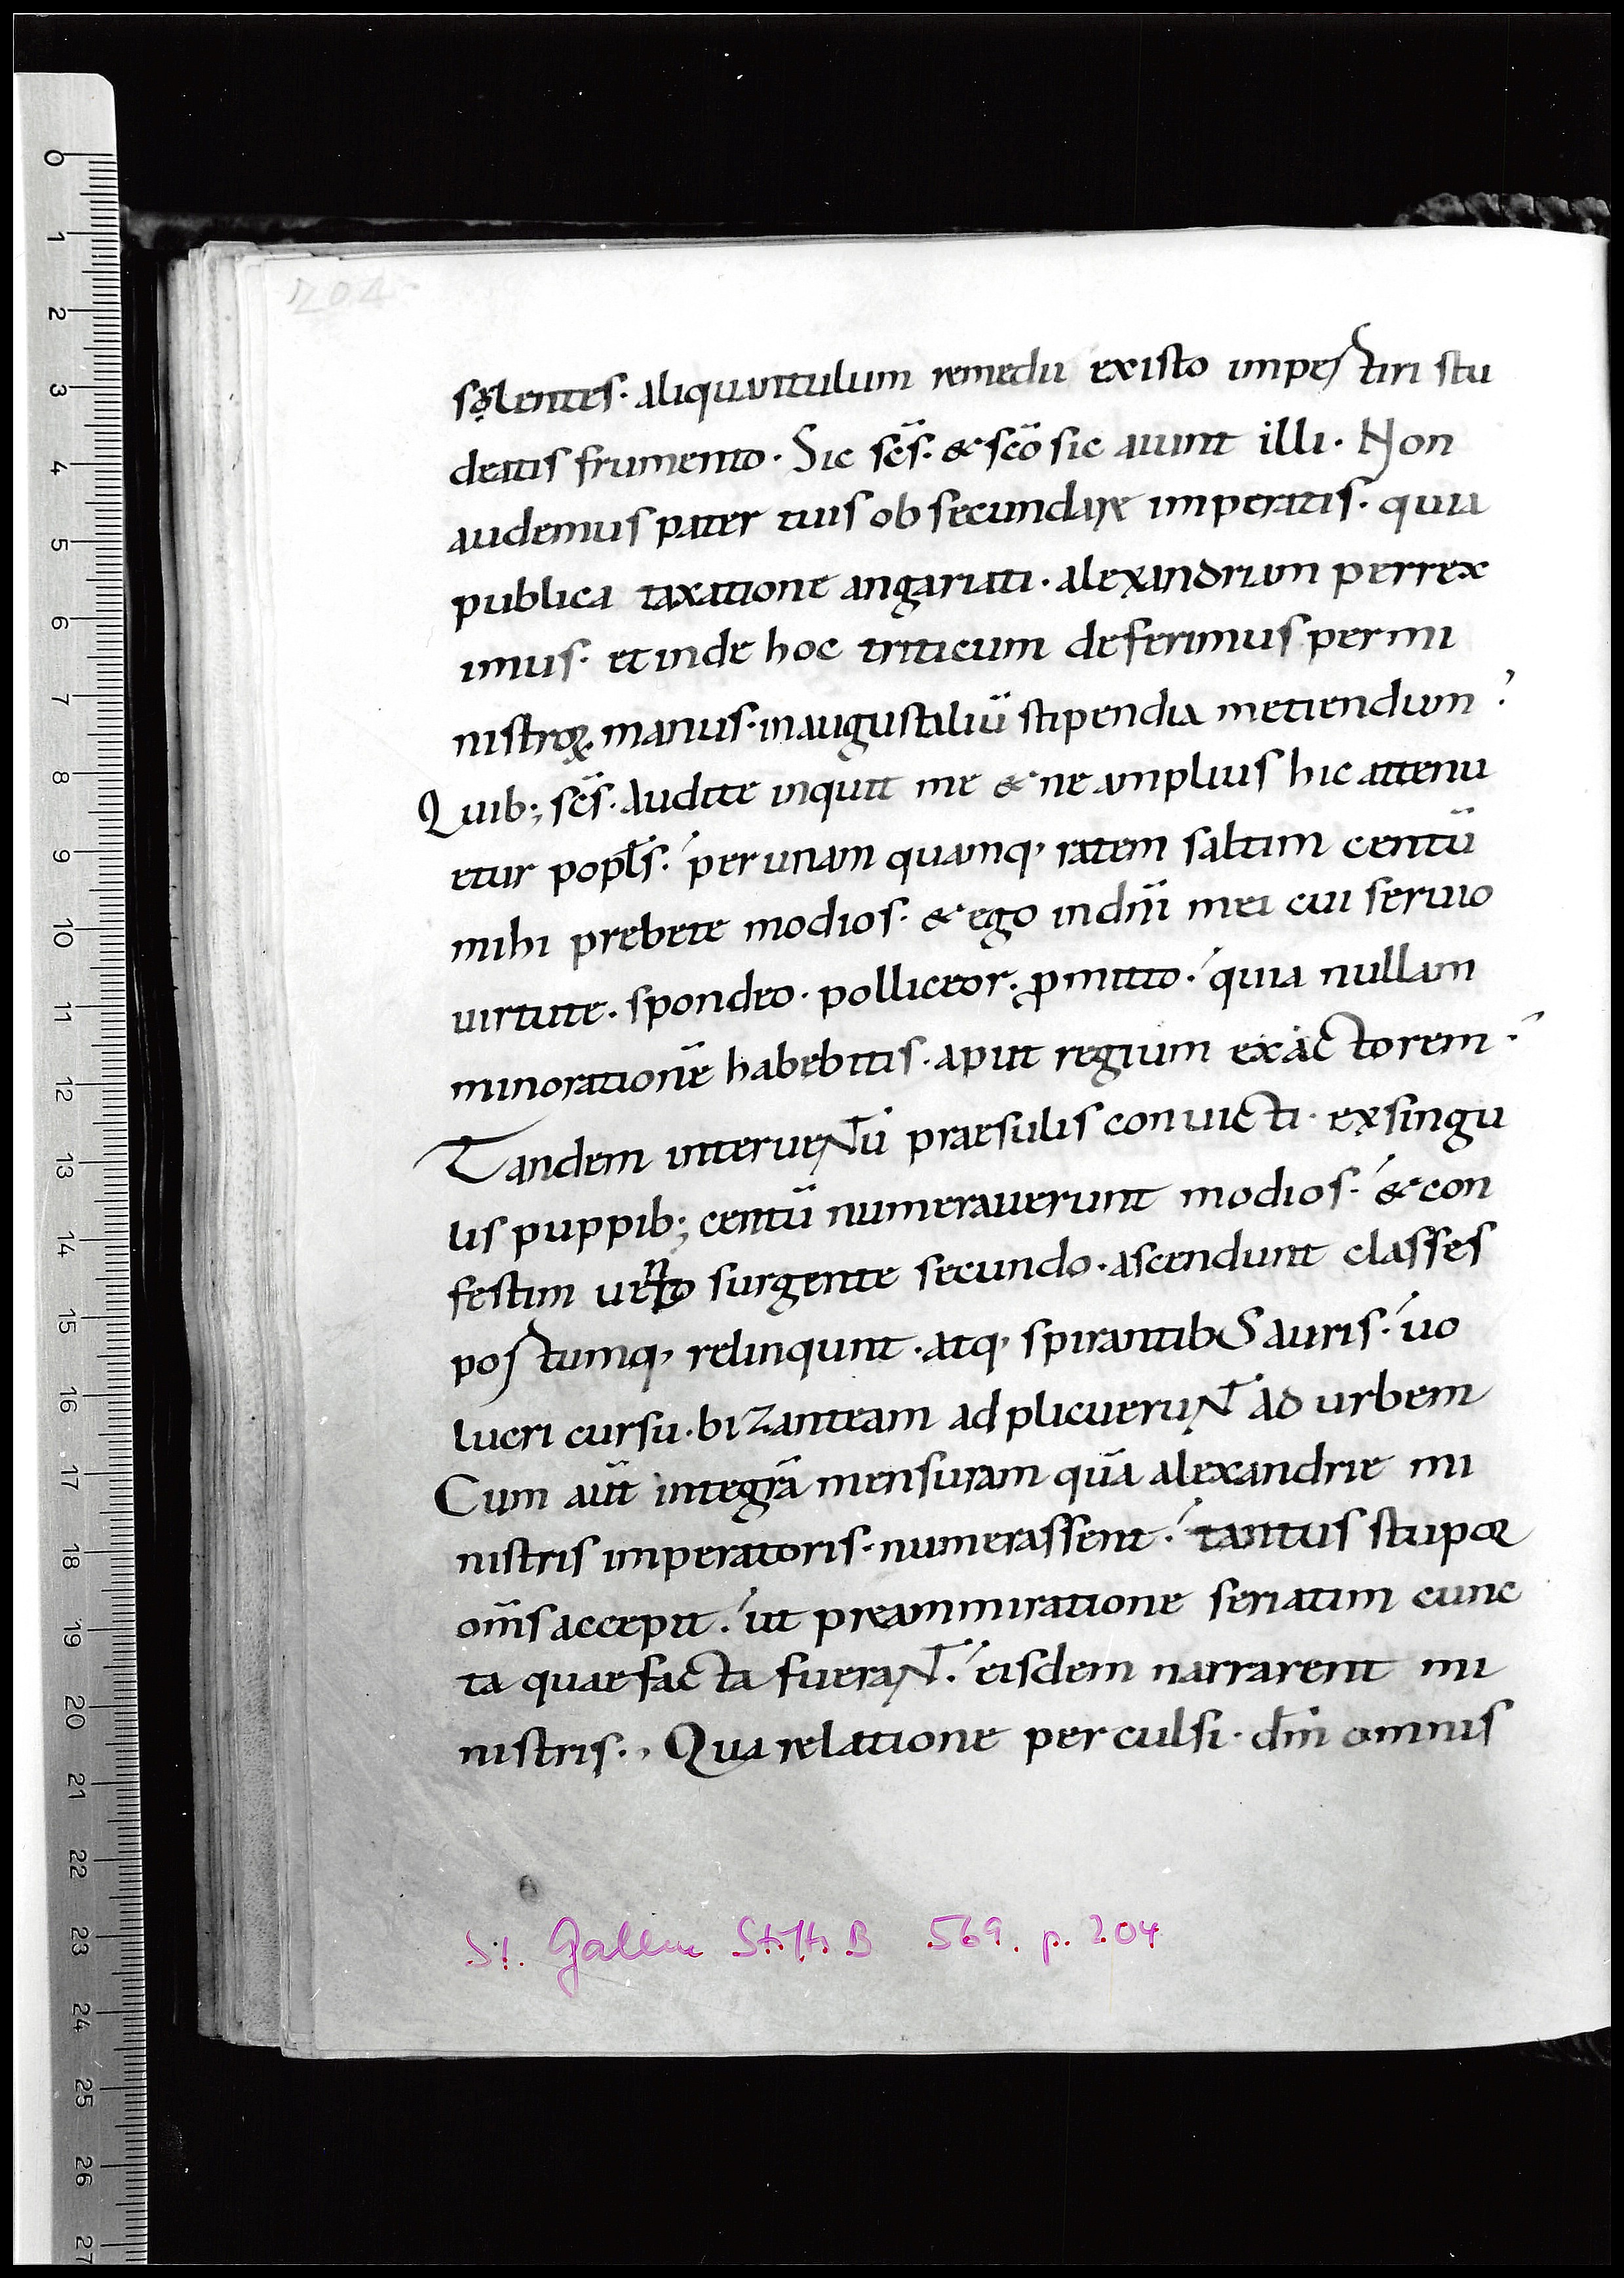 204
solentes. aliquantulum remedii existo impertiri stu
deatis frumento. Sic sc̄s. & sc̄o sic aiunt illi. Non
audemus pater tuis obsecundare imperatis. quia
publica taxatione angariati. alexandriam perrex
imus. et inde hoc triticum deferimus per mi
nistroꝝ manus. in augustaliū stipendia metiendum
Quib; sc̄s. Audite inquit me & ne amplius hic attenu
etur popl̄s. per unam quamq, ratem saltim centū
mihi prebete modios. & ego in dn̄i mei cui seruio
uirtute. spondeo. polliceor. ꝓmitto. quia nullam
minorationē habebitis. aput regium exactorem.
Tandem interuentū praesulis conuicti. ex singu
lis puppib; centū numerauerunt modios. & con
festim uento surgente secundo. ascendunt classes
postumq, relinqunt. atq, spirantibus auris. uo
lucri cursu. bizanteam adplicuerunt ad urbem
Cum aūt integrā mensuram quā alexandrie mi
nistris imperatoris. numerassent. tantus stupor
om̄s accepit. ut preammiratione seriatim cunc
ta quae facta fuerant. eisdem narrarent mi
nistris., Qua relatione perculsi. dm̄ omnis
St. Gallen Stifts B 569. p. 204
0
1
2
3
4
5
6
7
8
9
10
11
12
13
14
15
16
17
18
19
20
21
22
23
24
25
26
27